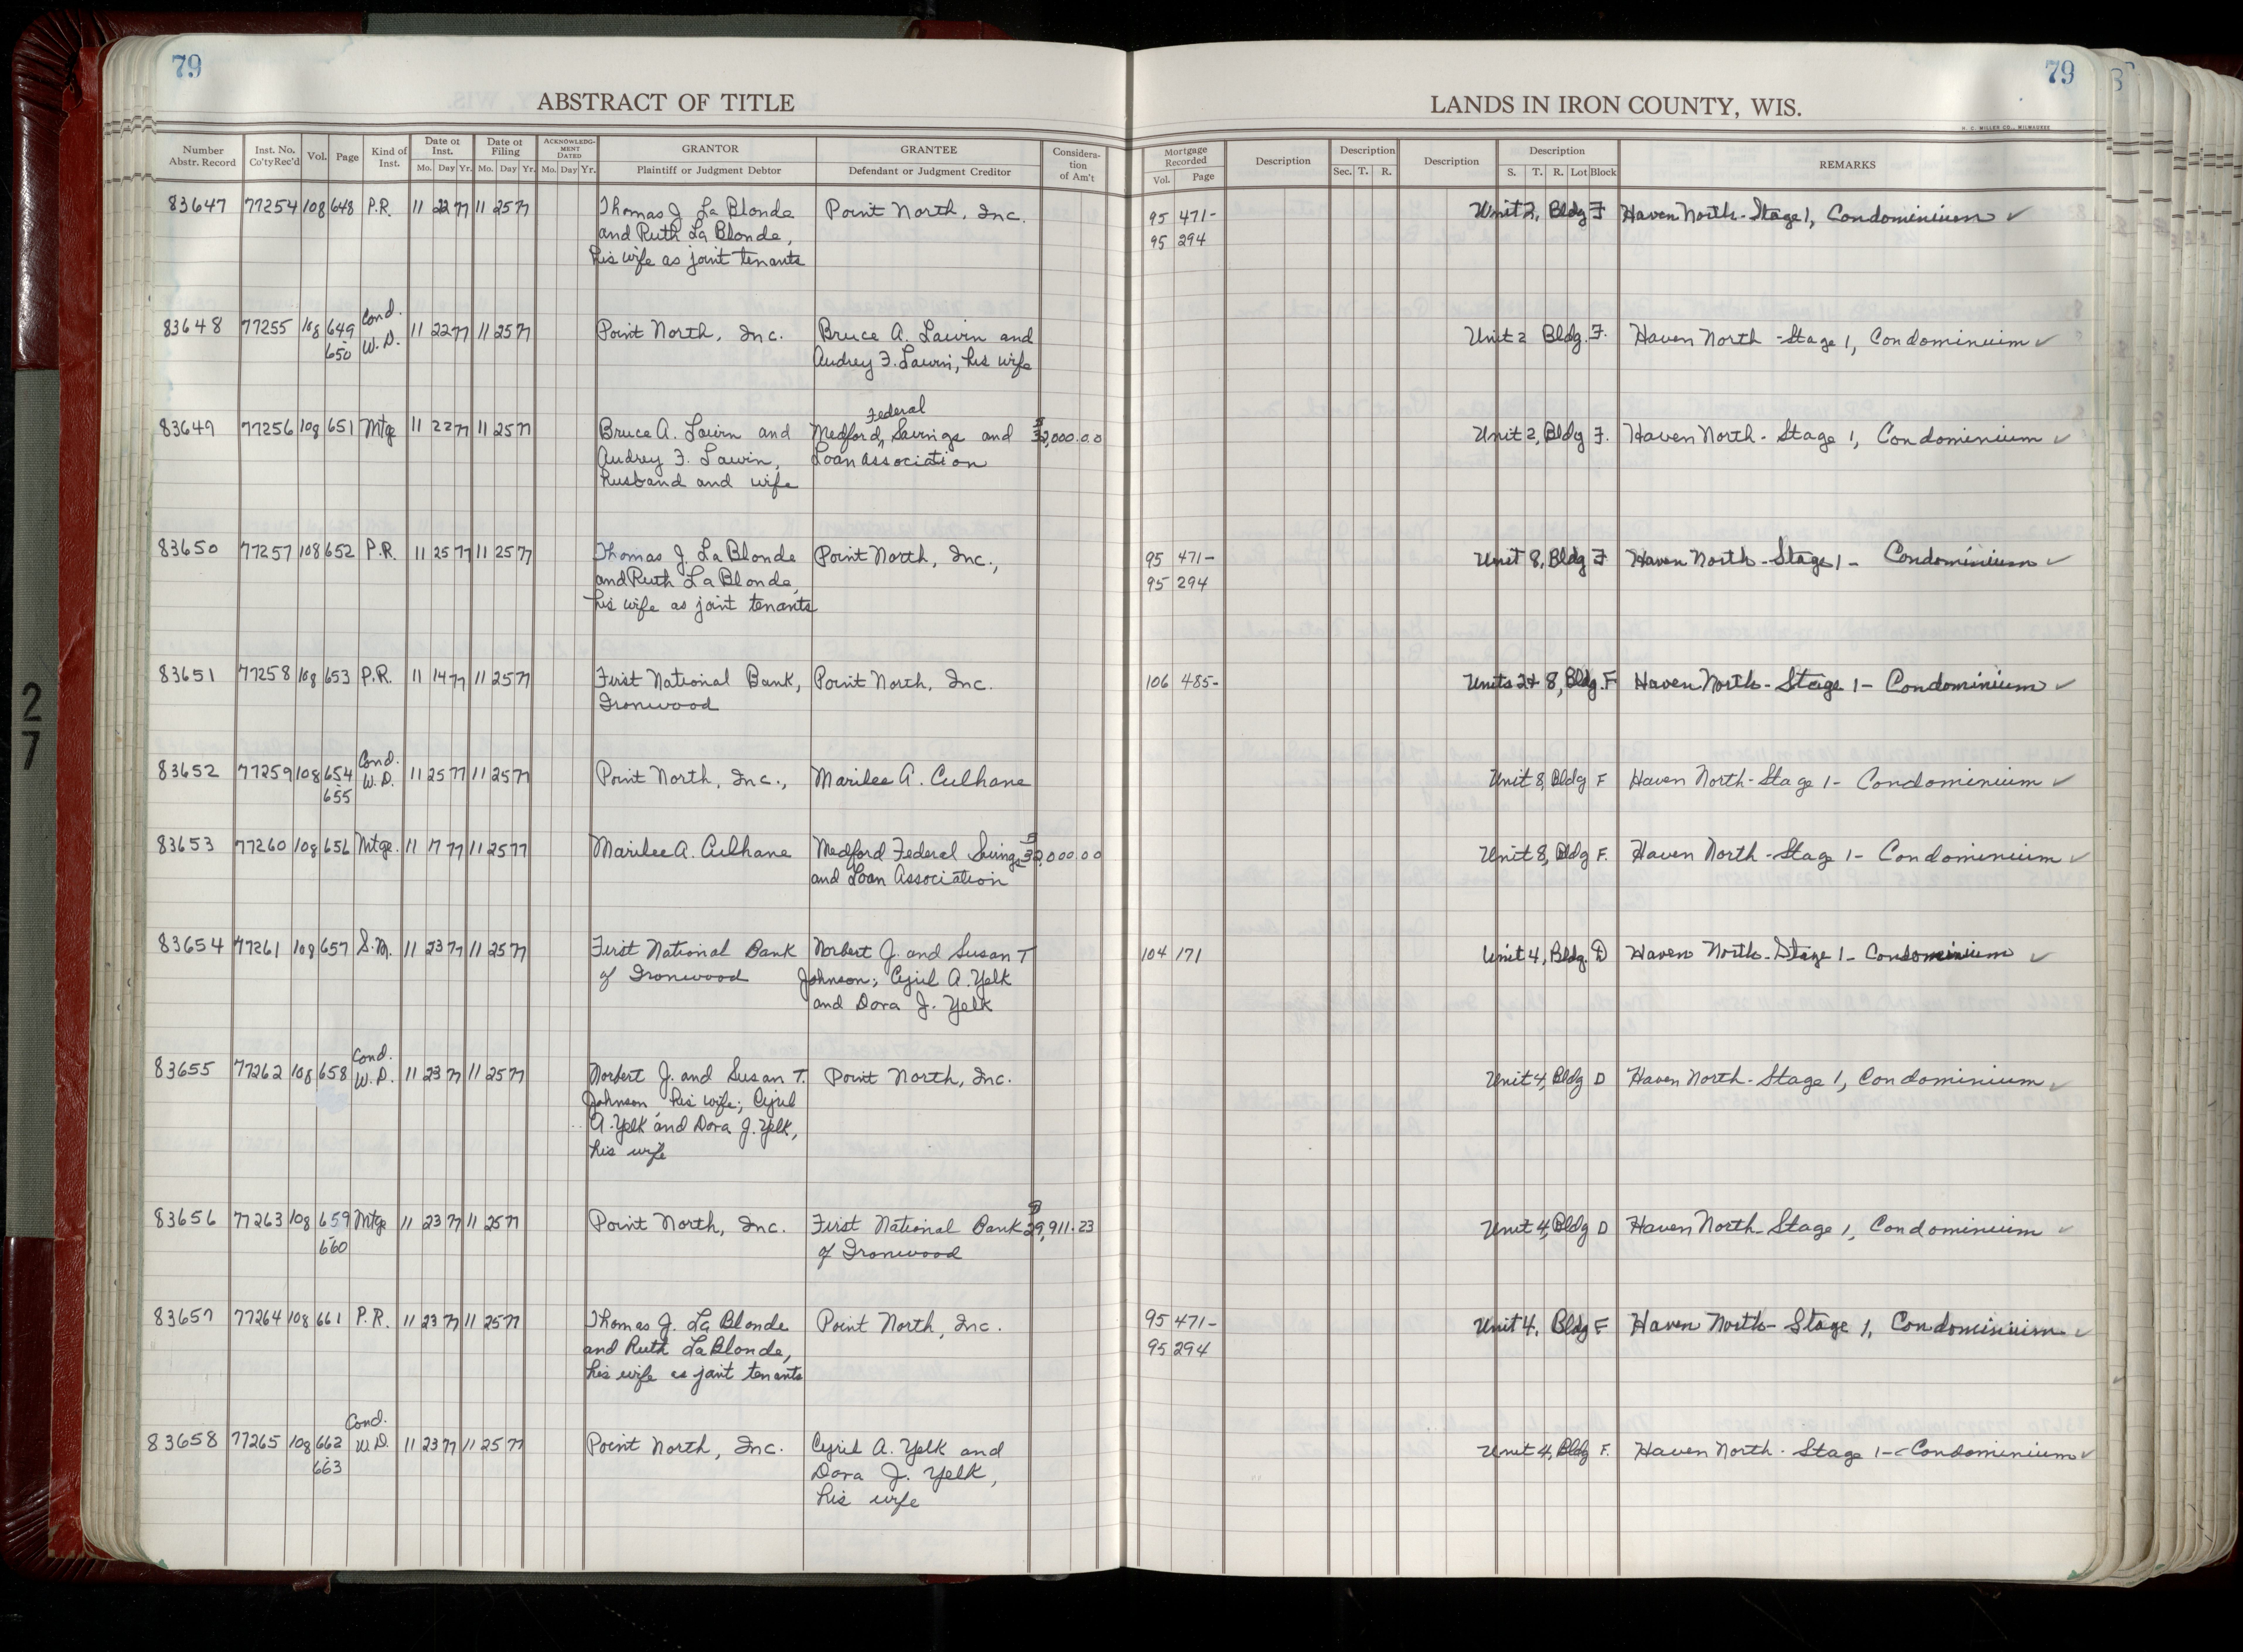 79
79
ABSTRACT OF TITLE
LANDS IN IRON COUNTY, WIS.
H. C. MILLER CO., MILWAUKEE
Number Abstr. Record Inst. No. Co'ty Rec'd Vol. Page Kind of Inst. Date of Inst. Mo. Day Yr. Date of Filing Mo. Day Yr. ACKNOWLEDGMENT DATED Mo. Day Yr. GRANTOR Plaintiff or Judgment Debtor GRANTEE Defendant or Judgment Creditor Consideration of Am't Mortgage Recorded Vol. Page Description Description Sec. T. R. Description Description S. T. R. Lot Block REMARKS
83647 77254 108 648 P.R. 11 22 77 11 25 77 Thomas J. La Blonde Point North, Inc. 95 471- Unit 2, Bldg F Haven North-Stage 1, Condominium ✓
and Ruth La Blonde, 95 294
his wife as joint tenants
Cond.
83648 77255 108 649 W.D. 11 22 77 11 25 77 Point North, Inc. Bruce A. Lawin and Unit 2 Bldg. F. Haven North -Stage 1, Condominium ✓
650 Audrey F. Lawin, his wife
Federal
83649 77256 108 651 Mtge 11 22 77 11 25 77 Bruce A. Lawin and Medford, Savings and $ 32,000.00 Unit 2, Bldg F. Haven North- Stage 1, Condominium ✓
Audrey F. Lawin, Loan Association
husband and wife
83650 77257 108 652 P.R. 11 25 77 11 25 77 Thomas J. La Blonde Point North, Inc., 95 471- Unit 8, Bldg F Haven North-Stage 1- Condominium ✓
and Ruth La Blonde 95 294
his wife as joint tenants
83651 77258 108 653 P.R. 11 14 77 11 25 77 First National Bank, Point North, Inc. 106 485- Units 2+ 8, Bldg. F Haven North-Stage 1- Condominium ✓
Ironwood
Cond.
83652 77259 108 654 W.D. 11 25 77 11 25 77 Point North, Inc., Marilee A. Culhane Unit 8, Bldg F Haven North-Stage 1- Condominium ✓
655
83653 77260 108 656 Mtge. 11 17 77 11 25 77 Marilee A. Culhane Medford Federal Savings $ ,000.00 Unit 8, Bldg F. Haven North-Stage 1- Condominium ✓
and Loan Association
83654 77261 108 657 S.M. 11 23 77 11 25 77 First National Bank Norbert J. and Susan T 104 171 Unit 4, Bldg. D Haven North-Stage 1- Condominium ✓
of Ironwood Johnson; Cyril A. Yelk
and Dora J. Yelk
Cond.
83655 77262 108 658 W.D. 11 23 77 11 25 77 Norbert J. and Susan T. Point North, Inc. Unit 4, Bldg D Haven North-Stage 1, Condominium ✓
Johnson, his wife; Cyril
A. Yelk and Dora J. Yelk,
his wife
83656 77263 108 659 Mtge 11 23 77 11 25 77 Point North, Inc. First National Bank $ 29,911.23 Unit 4, Bldg D Haven North-Stage 1, Condominium ✓
660 of Ironwood
83657 77264 108 661 P.R. 11 23 77 11 25 77 Thomas J. La Blonde Point North, Inc. 95 471- Unit 4, Bldg F Haven North- Stage 1, Condominium ✓
and Ruth La Blonde, 95 294
his wife as joint tenants
Cond.
83658 77265 108 662 W.D. 11 23 77 11 25 77 Point North, Inc. Cyril A. Yelk and Unit 4, Bldg F. Haven North- Stage 1- Condominium ✓
663 Dora J. Yelk,
his wife
27